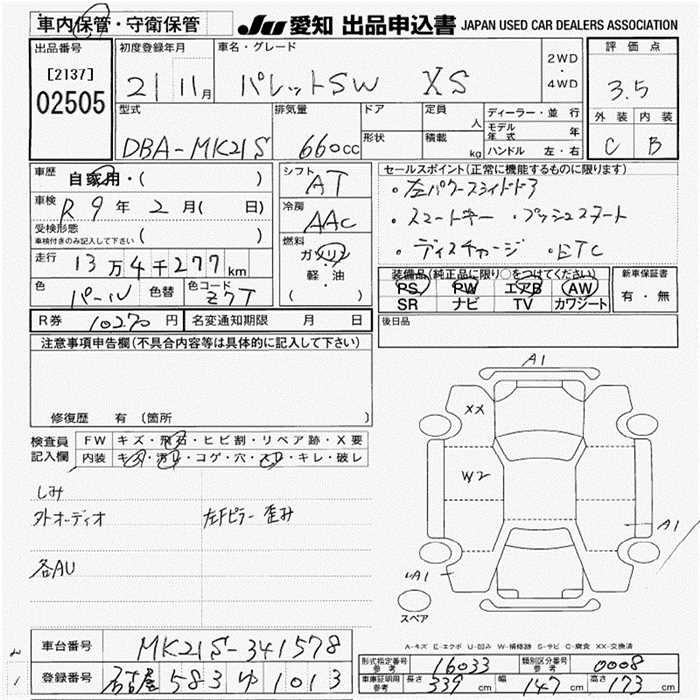 車内保管・守衛保管
JU 愛知 出品申込書 JAPAN USED CAR DEALERS ASSOCIATION
出品番号
[2137]
02505
初度登録年月
21 11月
車名・グレード
パレットSW XS
2WD
・
4WD
評価点
3.5
外装 内装
C B
型式
DBA-MK21S
排気量
660cc
ドア
形状
定員
人
積載
kg
ディーラー・並行
モデル年式 年
ハンドル 左・右
車歴
自家用・( )
車検
R9年2月( 日)
受検形態
車検付きのみ記入して下さい ( )
走行
13万4千277km
色
パール
色替
色コード
Z7T
シフト
AT
冷房
AAC
燃料
ガソリン
軽・油
( )
セールスポイント(正常に機能するものに限ります)
・左パワースライドドア
・スマートキー ・プッシュスタート
・ディスチャージ ・ETC
装備品(純正品に限り○をつけてください)
PS PW エアB AW
SR ナビ TV カワシート
新車保証書
有・無
R券 10270円
名変通知期限 月 日
後日品
注意事項申告欄(不具合内容等は具体的に記入して下さい)
修復歴 有 (箇所 )
検査員
記入欄
FW キズ・飛石・ヒビ割・リペア跡・X要
内装 キズ・汚れ・コゲ・穴・スレ・キレ・破レ
しみ
外オーディオ 左Fピラー歪み
各AU
A1
XX
W2
A1
A1
スペア
A-キズ E-エクボ U-凹み W-補修跡 S-サビ C-腐食 XX-交換済
車台番号
MK21S-341578
登録番号
名古屋 583 ゆ 1013
型式指定番号
参考
16033
類別区分番号
参考
0008
車庫証明用
参考
長さ 339cm 幅 147cm 高さ 173cm